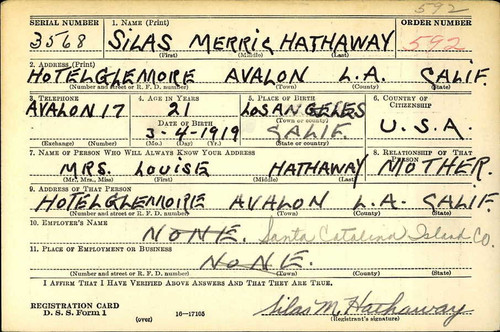 592
SERIAL NUMBER 1. NAME (Print) ORDER NUMBER
3568 SILAS MERRIC HATHAWAY 592
(First) (Middle) (Last)
2. ADDRESS (Print)
HOTEL GLENMORE AVALON L.A. CALIF.
(Number and street or R. F. D. number) (Town) (County) (State)
3. TELEPHONE 4. AGE IN YEARS 5. PLACE OF BIRTH 6. COUNTRY OF CITIZENSHIP
AVALON 17 21 LOS ANGELES
(Town or county)
DATE OF BIRTH
3-4-1919 CALIF. U.S.A.
(Exchange) (Number) (Mo.) (Day) (Yr.) (State or country)
7. NAME OF PERSON WHO WILL ALWAYS KNOW YOUR ADDRESS 8. RELATIONSHIP OF THAT PERSON
MRS. LOUISE HATHAWAY MOTHER.
(Mr., Mrs., Miss) (First) (Middle) (Last)
9. ADDRESS OF THAT PERSON
HOTEL GLENMORE AVALON L.A. CALIF.
(Number and street or R. F. D. number) (Town) (County) (State)
10. EMPLOYER'S NAME
NONE. Santa Catalina Island Co.
11. PLACE OF EMPLOYMENT OR BUSINESS
NONE.
(Number and street or R. F. D. number) (Town) (County) (State)
I AFFIRM THAT I HAVE VERIFIED ABOVE ANSWERS AND THAT THEY ARE TRUE.
REGISTRATION CARD
D. S. S. Form 1 (over) 16-17105 Silas M. Hathaway
(Registrant's signature)